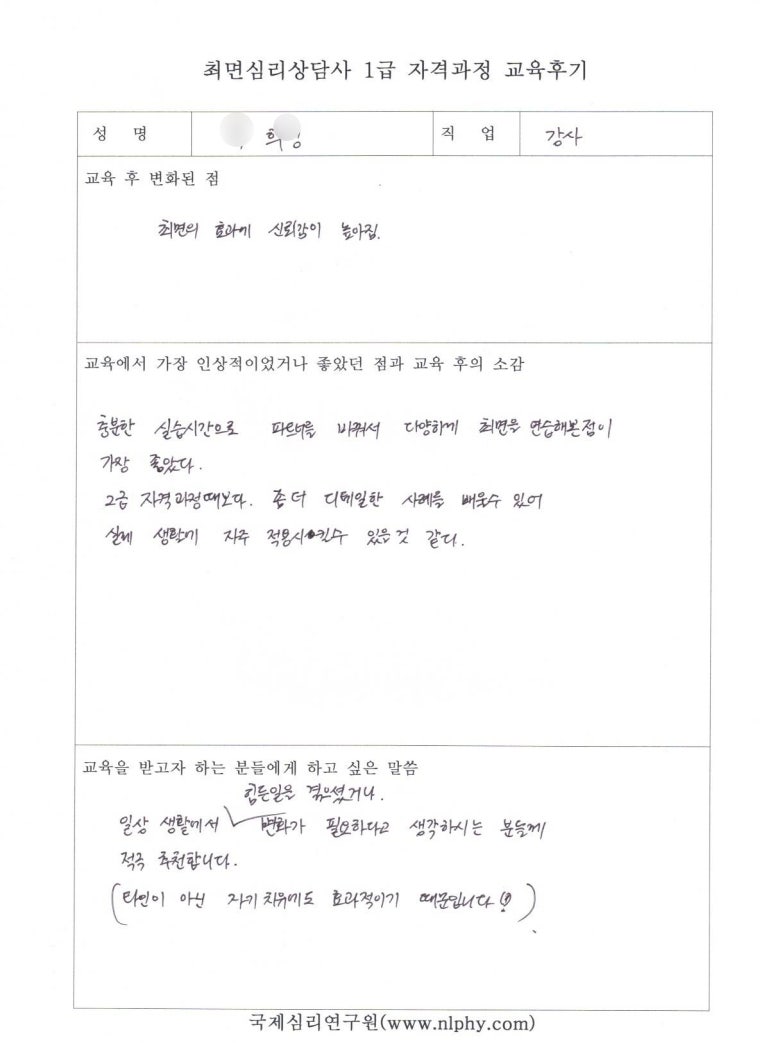 최면심리상담사 1급 자격과정 교육후기
성 명 직 업 강사
교육 후 변화된 점
최면의 효과에 신뢰감이 높아짐.
교육에서 가장 인상적이었거나 좋았던 점과 교육 후의 소감
충분한 실습시간으로 파트너를 바꿔서 다양하게 최면을 연습해본점이
가장 좋았다.
2급 자격과정때보다. 좀 더 디테일한 사례를 배울수 있어
실제 생활에 자주 적용시킬수 있을것 같다.
교육을 받고자 하는 분들에게 하고 싶은 말씀
힘든일을 겪으셨거나.
일상 생활에서 변화가 필요하다고 생각하시는 분들께
적극 추천합니다.
(타인이 아닌 자기치유에도 효과적이기 때문입니다!)
국제심리연구원(www.nlphy.com)